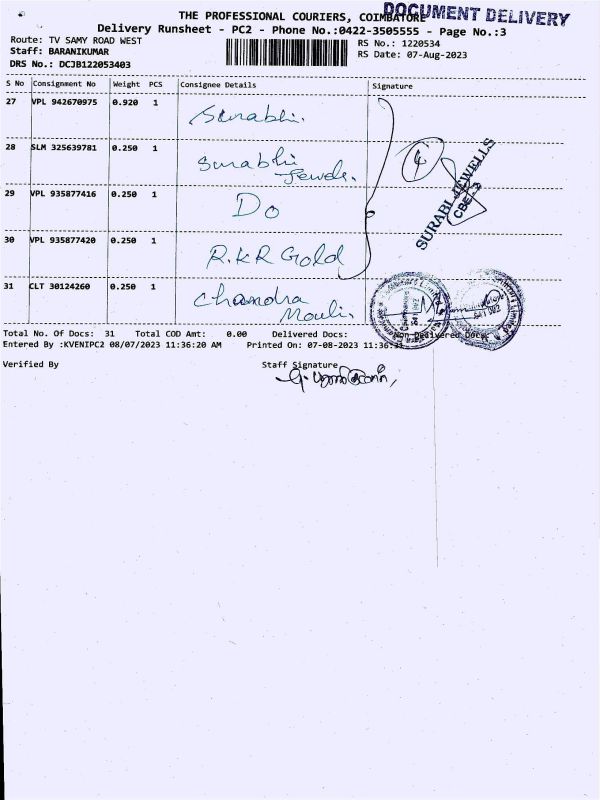 THE PROFESSIONAL COURIERS, COIMBATORE
DOCUMENT DELIVERY
Delivery Runsheet - PC2 - Phone No.:0422-3505555 - Page No.:3
Route: TV SAMY ROAD WEST
RS No.: 1220534
Staff: BARANIKUMAR
RS Date: 07-Aug-2023
DRS No.: DCJB122053403
S No Consignment No Weight PCS Consignee Details Signature
27 VPL 942670975 0.920 1 Surabhi.
28 SLM 325639781 0.250 1 Surabhi Jewels.
4
SURABI JEWELLS
CBE-2
29 VPL 935877416 0.250 1 Do
30 VPL 935877420 0.250 1 R.K R Gold
31 CLT 30124260 0.250 1 Chandra Mouli.
Total No. Of Docs: 31 Total COD Amt: 0.00 Delivered Docs: Non Delivered Docs:
Entered By :KVENIPC2 08/07/2023 11:36:20 AM Printed On: 07-08-2023 11:36:31
Verified By Staff Signature